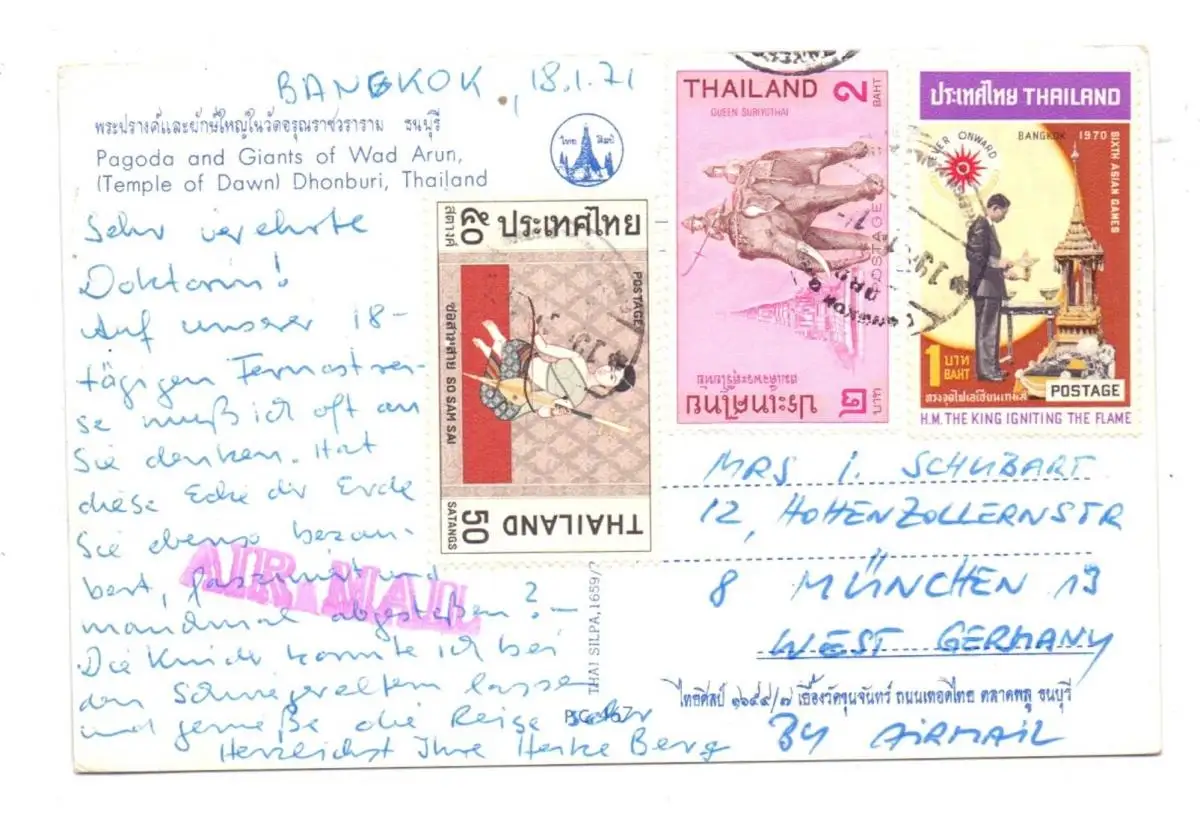 BANGKOK, 18.1.71
พระปรางค์และยักษ์ใหญ่ในวัดอรุณราชวราราม ธนบุรี
Pagoda and Giants of Wad Arun,
(Temple of Dawn) Dhonburi, Thailand
ไทย ศิลป์
Sehr verehrte
Doktorin!
Auf unserer 18-
tägigen Fernostrei-
se muß ich oft an
Sie denken. Hat
diese Ecke der Erde
Sie ebenso bezau-
bert, fasziniert und
manchmal abgestoßen? –
Die Kinder konnte ich bei
den Schwiegereltern lassen
und genieße die Reise sehr
Herzlichst Ihre Heike Berg
AIR MAIL
๕๐ ประเทศไทย
สตางค์
POSTAGE
ซอสามสาย SO SAM SAI
50 THAILAND
SATANGS
THAILAND 2
BAHT
QUEEN SURIYOTHAI
POSTAGE
สมเด็จพระสุริโยทัย
ประเทศไทย ๒
บาท
ประเทศไทย THAILAND
EVER ONWARD
BANGKOK 1970
SIXTH ASIAN GAMES
1 บาท
BAHT
POSTAGE
ทรงจุดไฟเอเชียนเกมส์
H.M. THE KING IGNITING THE FLAME
MRS I. SCHUBART
12, HOHENZOLLERNSTR
8 MÜNCHEN 13
WEST GERMANY
THAI SILPA, 1659/7
ไทยศิลป์ ๑๖๕๙/๗ เยื้องวัดขุนจันทร์ ถนนเทอดไทย ตลาดพลู ธนบุรี
BY AIRMAIL